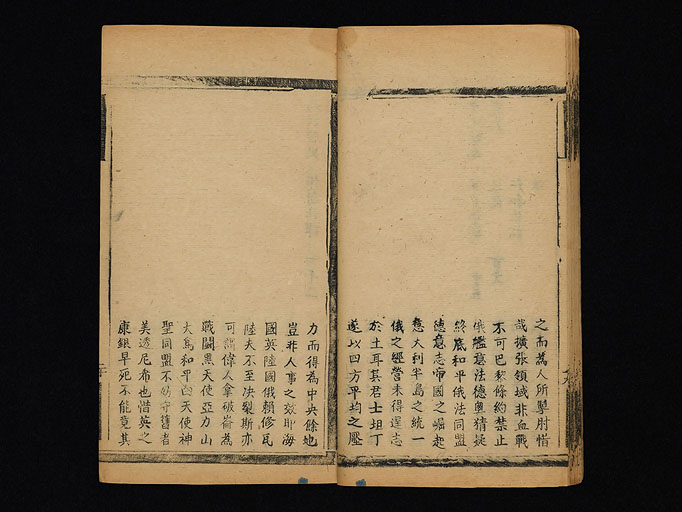 之而為人所掣肘惜
哉擴張領域非血戰
不可巴黎條約禁止
俄艦意法德奧猜疑
終底和平俄法同盟
德意志帝國之崛起
意大利半島之統一
俄之經營未得逞志
於土耳其君士坦丁
遂以四方平均之壓
力而得為中央餘地
豈非人事之效耶海
國英陸國俄賴修瓦
陸夫不至決裂斯亦
可謂偉人拿破崙為
戰鬪黑天使亞力山
大為和平白天使神
聖同盟不妨守舊者
美透尼希也惜英之
康銀早死不能竟其